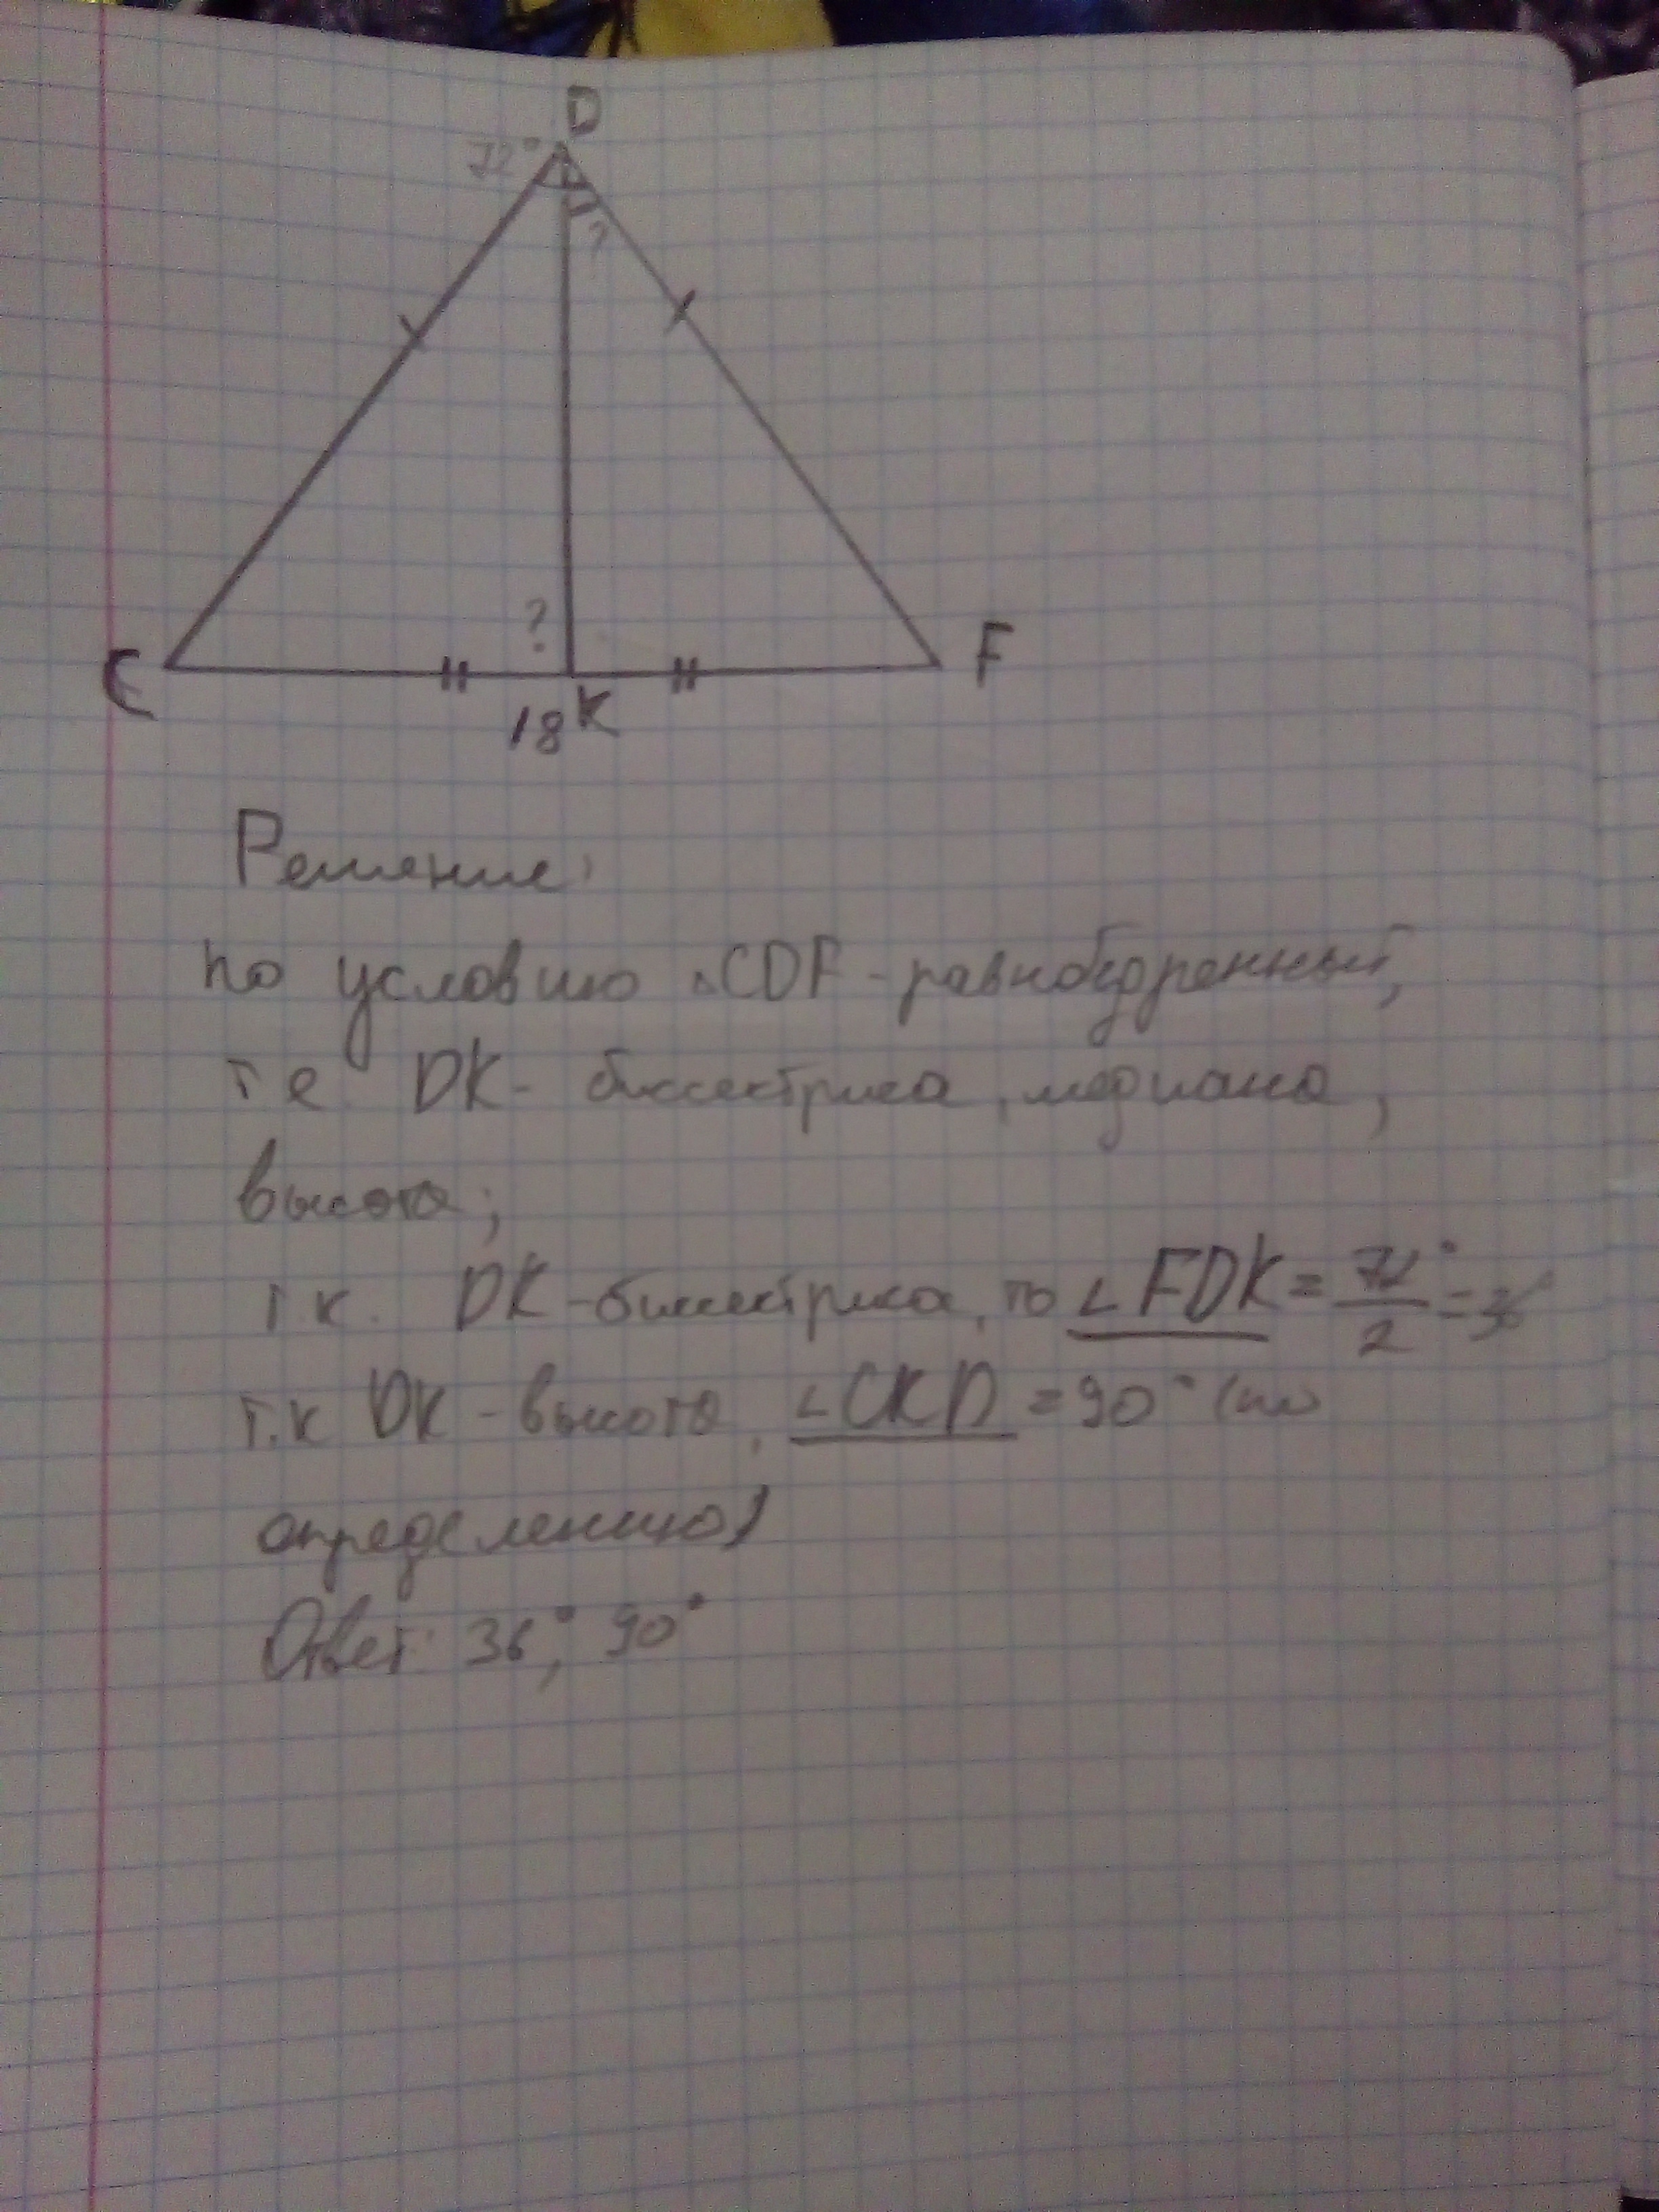 D
72°
?
?
C
F
K
18
Решение:
по условию △CDF - равнобедренный,
т е DK - биссектриса, медиана,
высота;
т.к. DK - биссектриса, то ∠FDK = 72°/2 = 36
т.к DK - высота, ∠CKD = 90° (по
определению)
Ответ: 36°, 90°